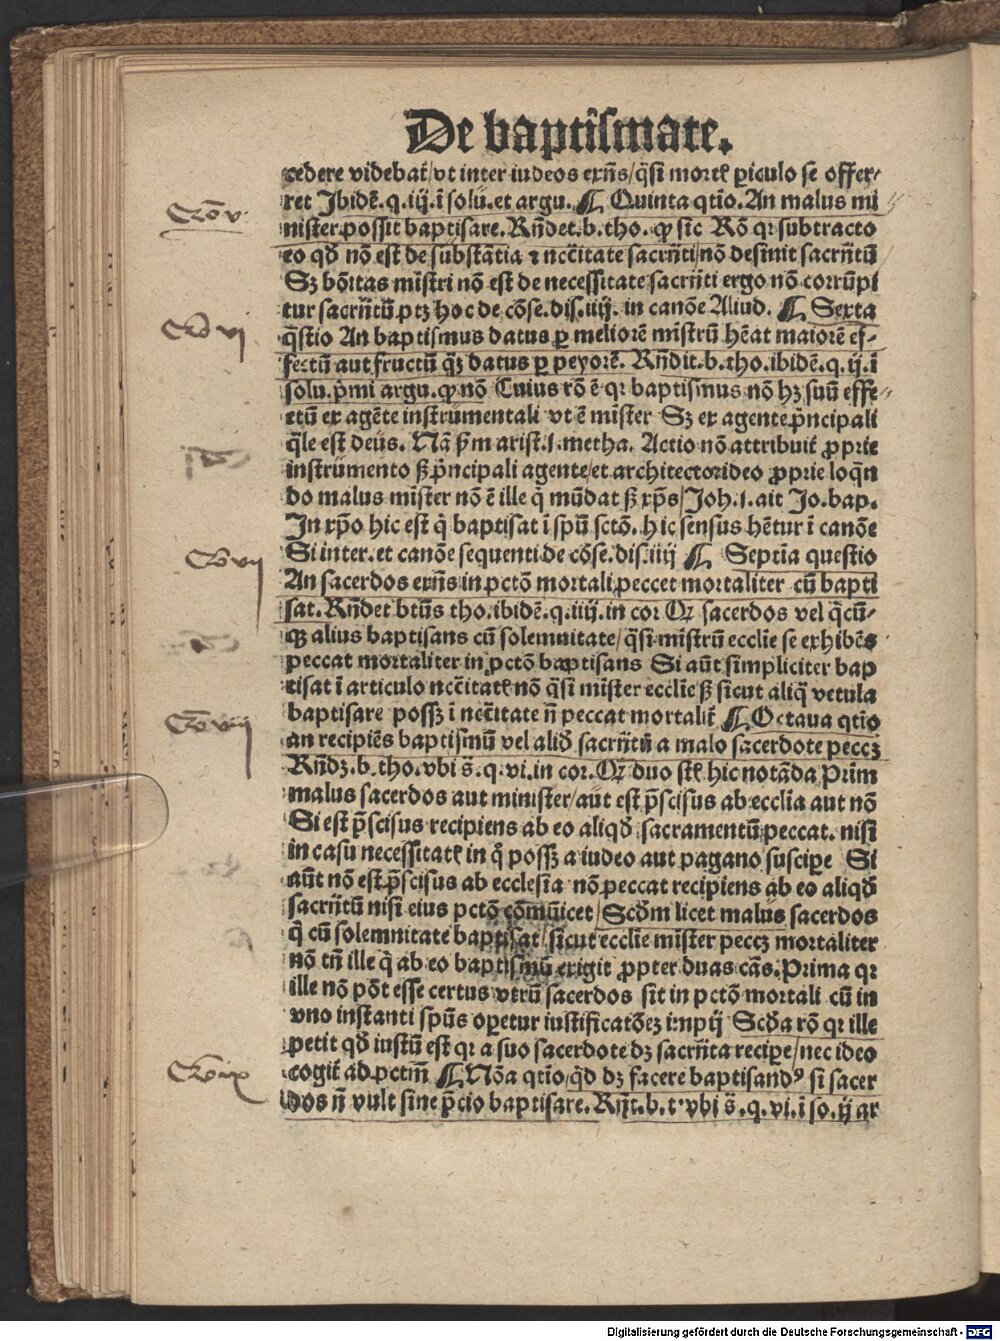 De baptismate.
cedere videbat᷑/vt inter iudeos exñs/q̄si mortꝭ ꝑiculo se offer⸗
ret Jbidē.q.iij.ī solū.et argu. ¶ Quinta qtio. An malus mi
nister possit baptisare. Rñdet.b.tho. ꝙ sic Rō qꝛ subtracto
eo qd̄ nō est de substātia ⁊ nccītate sacrñti/nō desinit sacrñtū
Sꝫ bōitas mīstri nō est de necessitate sacrñti ergo nō corrūpi
tur sacrñtū ptꝫ hoc de cōse.dis.iiij. in canōe Aliud. ¶ Sexta
q̄stio An baptismus datus ꝑ meliorē mīstrū hēat maiorē ef⸗
fectū aut fructū q̄ꝫ datus ꝑ peyorē. Rñdit.b.tho.ibidē.q.ij.ī
solu.p̄mi argu.ꝙ nō Cuius rō ē qꝛ baptismus nō hꝫ suū effe⸗
ctū ex agēte instrumentali vt ē mīster Sꝫ ex agente p̄ncipali
q̄le est deus. Nā ẜm arist.1.metha. Actio nō attribuit᷑ ꝓprie
instrumento ẞ p̄ncipali agente/et architectorideo ꝓprie loqn̄
do malus mīster nō ē ille q̇ mūdat ẞ xp̄s/Joh.1.ait Jo.bap.
Jn xp̄o hic est q̇ baptisat ī spū sctō. hic sensus hētur ī canōe
Si inter.et canōe sequenti de cōse.dis.iiij ¶ Septīa questio
An sacerdos exñs in pctō mortali peccet mortaliter cū bapti
sat. Rñdet btūs tho.ibidē.q.iiij.in cor Qꝛ sacerdos vel q̄cū⸗
qꝫ alius baptisans cū solemnitate/q̄si mīstrū ecclīe se exhibēs
peccat mortaliter in pctō baptisans Si aūt simpliciter bap
tisat ī articulo nccītatꝭ nō q̄si mīster ecclīe ẞ sicut aliq̄ vetula
baptisare possꝫ ī nccītate ñ peccat mortalit᷑ ¶ Octaua qtio
an recipiēs baptismū vel alid̄ sacrñtū a malo sacerdote peccꝫ
Rñdꝫ.b.tho.vbi s̄.q.vi.in cor.Qꝛ duo st̄ hic notāda Prīm
malus sacerdos aut minister/aut est p̄scisus ab ecclīa aut nō
Si est p̄scisus recipiens ab eo aliqd̄ sacramentū peccat. nisi
in casu necessitatꝭ in q̊ possꝫ a iudeo aut pagano suscipe Si
aūt nō est p̄scisus ab ecclesīa nō peccat recipiens ab eo aliqd̄
sacrñtū nisi eius pctō cōmūicet/Scd̄m licet malus sacerdos
q̇ cū solemnitate baptisat/sicut ecclīe mīster peccꝫ mortaliter
nō tn̄ ille q̇ ab eo baptismū exigit ꝓpter duas cās. Prima qꝛ
ille nō pōt esse certus vtrū sacerdos sit in pctō mortali cū in
vno instanti spūs oꝑetur iustificatōeꝫ impij Scd̄a rō qꝛ ille
petit qd̄ iustū est qꝛ a suo sacerdote dꝫ sacrñta recipe/nec ideo
cogit᷑ ad pctm̄ ¶ Nōa qtio/qd̄ dꝫ facere baptisandꝰ si sacer
dos ñ vult sine p̄cio baptisare. Rñt.b.t'vbi s̄.q.vi.ī so.ij ar
Digitalisierung gefördert durch die Deutsche Forschungsgemeinschaft - DFG